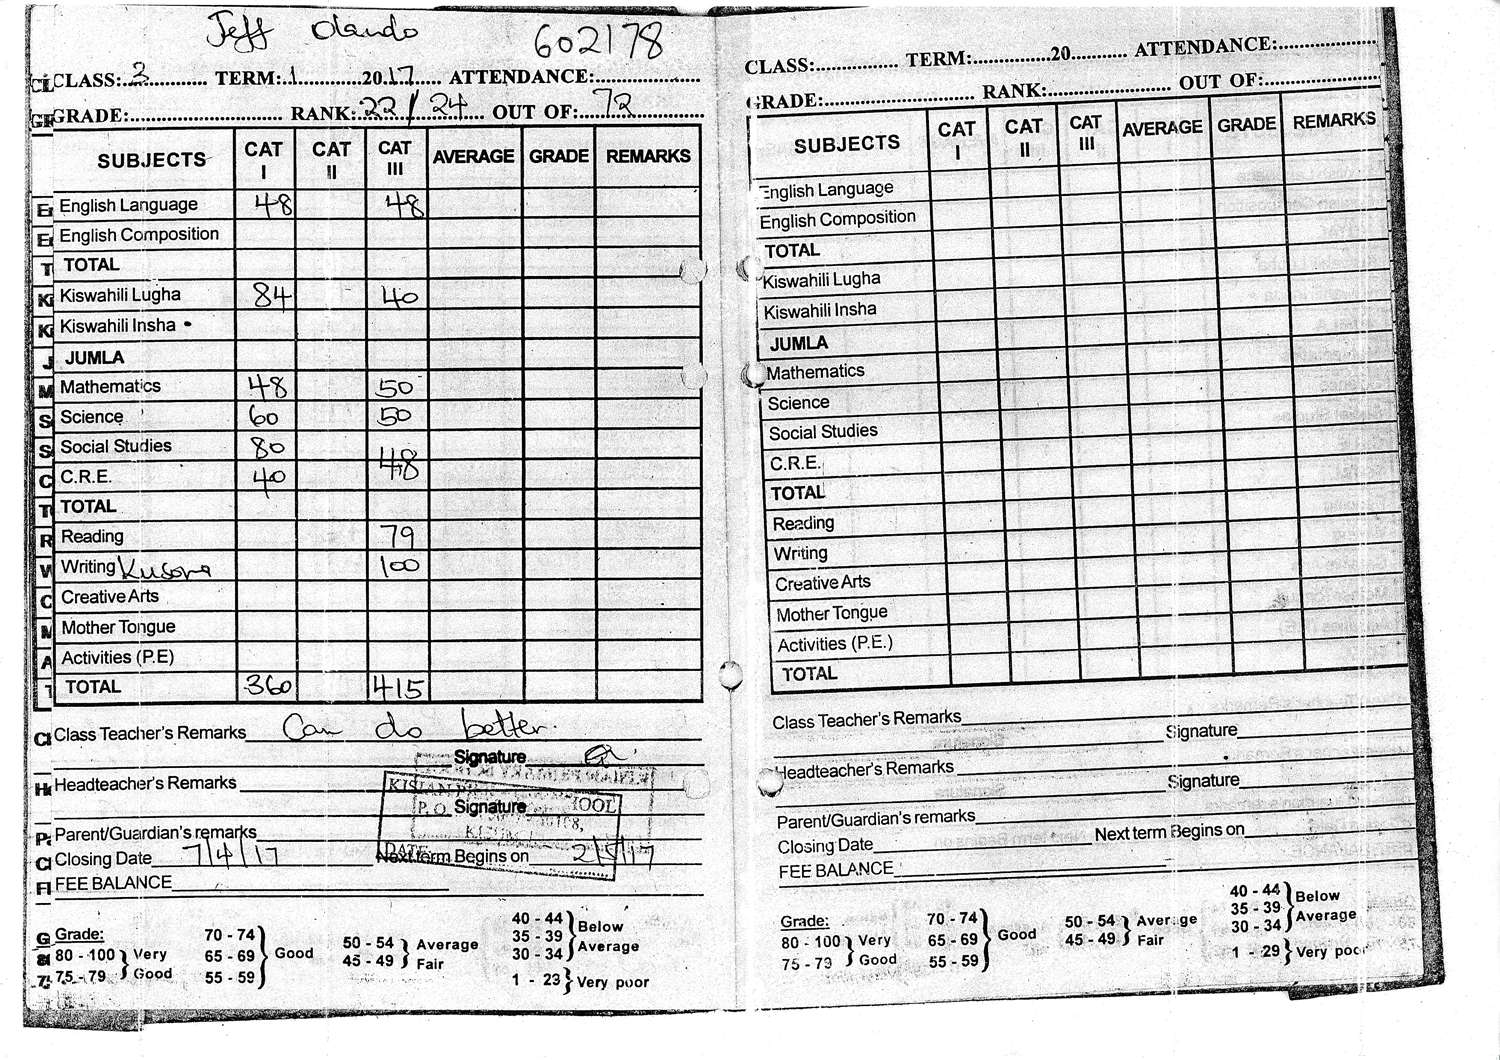 Jeff Olando 602178
CLASS: 3 TERM: 1 2017 ATTENDANCE:
GRADE: RANK: 22/24 OUT OF: 72
SUBJECTS CAT I CAT II CAT III AVERAGE GRADE REMARKS
English Language 48 48
English Composition
TOTAL
Kiswahili Lugha 84 40
Kiswahili Insha
JUMLA
Mathematics 48 50
Science 60 50
Social Studies 80 48
C.R.E. 40
TOTAL
Reading 79
Writing Kusoma 100
Creative Arts
Mother Tongue
Activities (P.E)
TOTAL 360 415
Class Teacher's Remarks Can do better.
Signature
Headteacher's Remarks
Signature
KISIAN PR SCHOOL
P.O.
DATE:
Parent/Guardian's remarks
Closing Date 7/4/17 Next term Begins on 2/5/17
FEE BALANCE
Grade:
80 - 100 Very
75 - 79 Good
70 - 74
65 - 69 Good
55 - 59
50 - 54 Average
45 - 49 Fair
40 - 44 Below
35 - 39
30 - 34 Average
1 - 23 Very poor
CLASS: TERM: 20 ATTENDANCE:
GRADE: RANK: OUT OF:
SUBJECTS CAT I CAT II CAT III AVERAGE GRADE REMARKS
English Language
English Composition
TOTAL
Kiswahili Lugha
Kiswahili Insha
JUMLA
Mathematics
Science
Social Studies
C.R.E.
TOTAL
Reading
Writing
Creative Arts
Mother Tongue
Activities (P.E.)
TOTAL
Class Teacher's Remarks
Signature
Headteacher's Remarks
Signature
Parent/Guardian's remarks
Closing Date Next term Begins on
FEE BALANCE
Grade:
80 - 100 Very
75 - 79 Good
70 - 74
65 - 69 Good
55 - 59
50 - 54 Average
45 - 49 Fair
40 - 44 Below
35 - 39
30 - 34 Average
1 - 29 Very poor